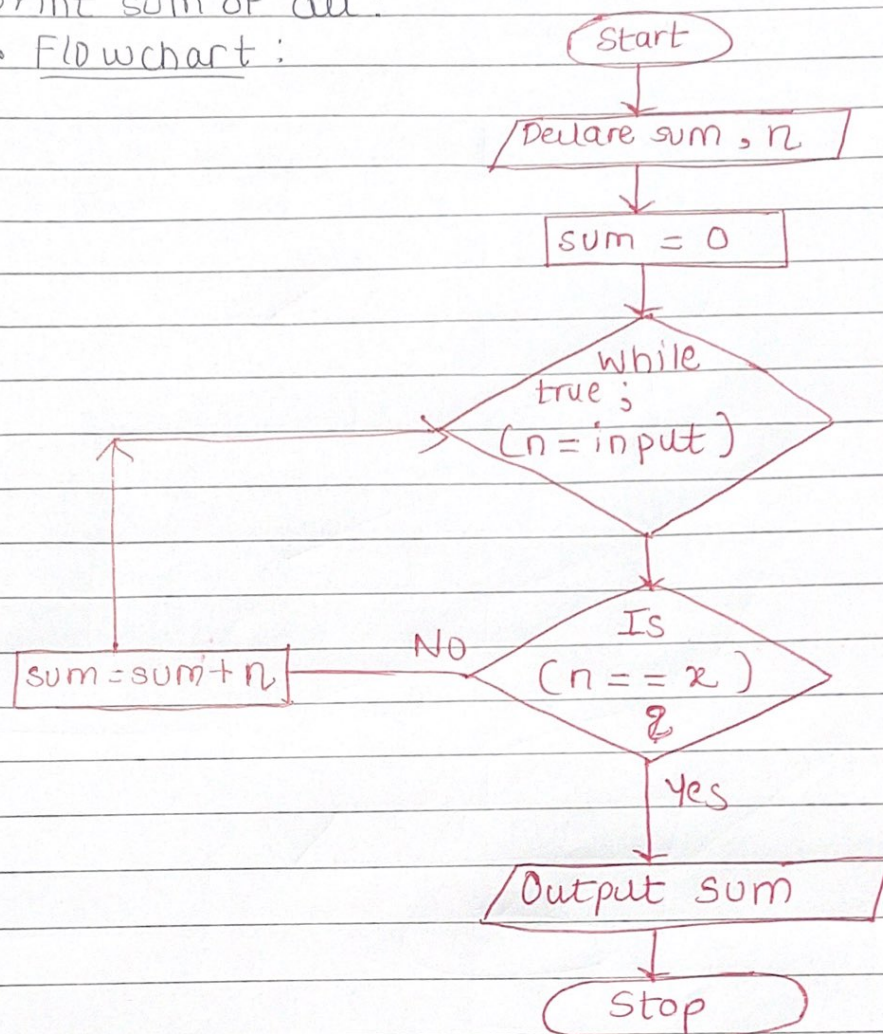 print sum of all.
Flowchart :
Start
Declare sum , n
sum = 0
while
true ;
(n = input )
Is
(n == x )
?
No
sum = sum + n
Yes
Output sum
Stop